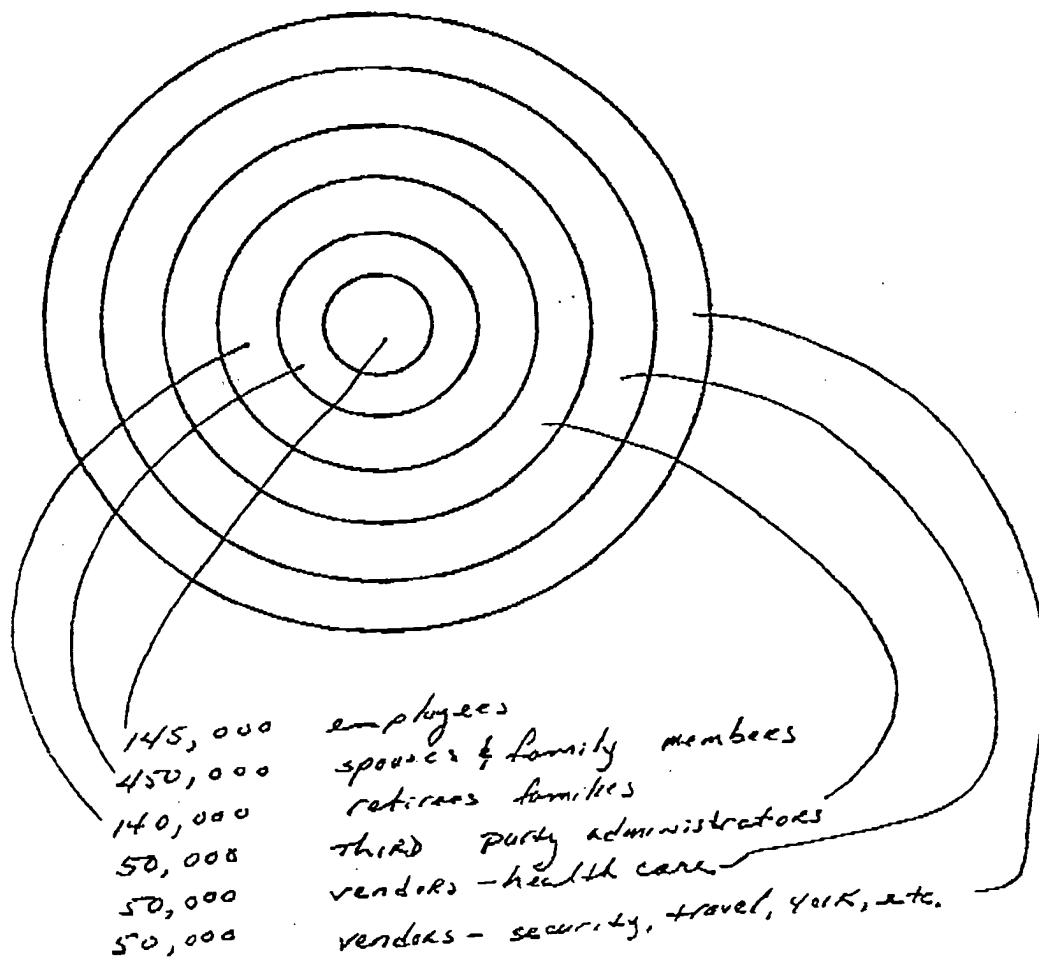 145,000 employees
450,000 spouses & family members
140,000 retirees families
50,000 THIRD party administrators
50,000 vendors - health care
50,000 vendors - security, travel, 401K, etc.